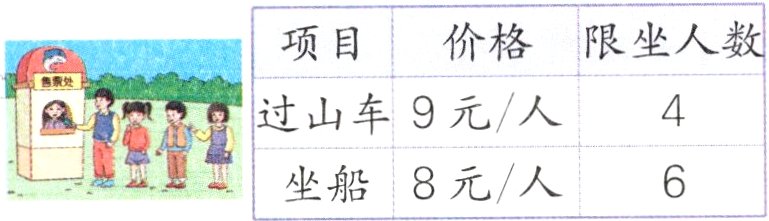 售票处
项目 价格 限坐人数
过山车 9元/人 4
坐船 8元/人 6